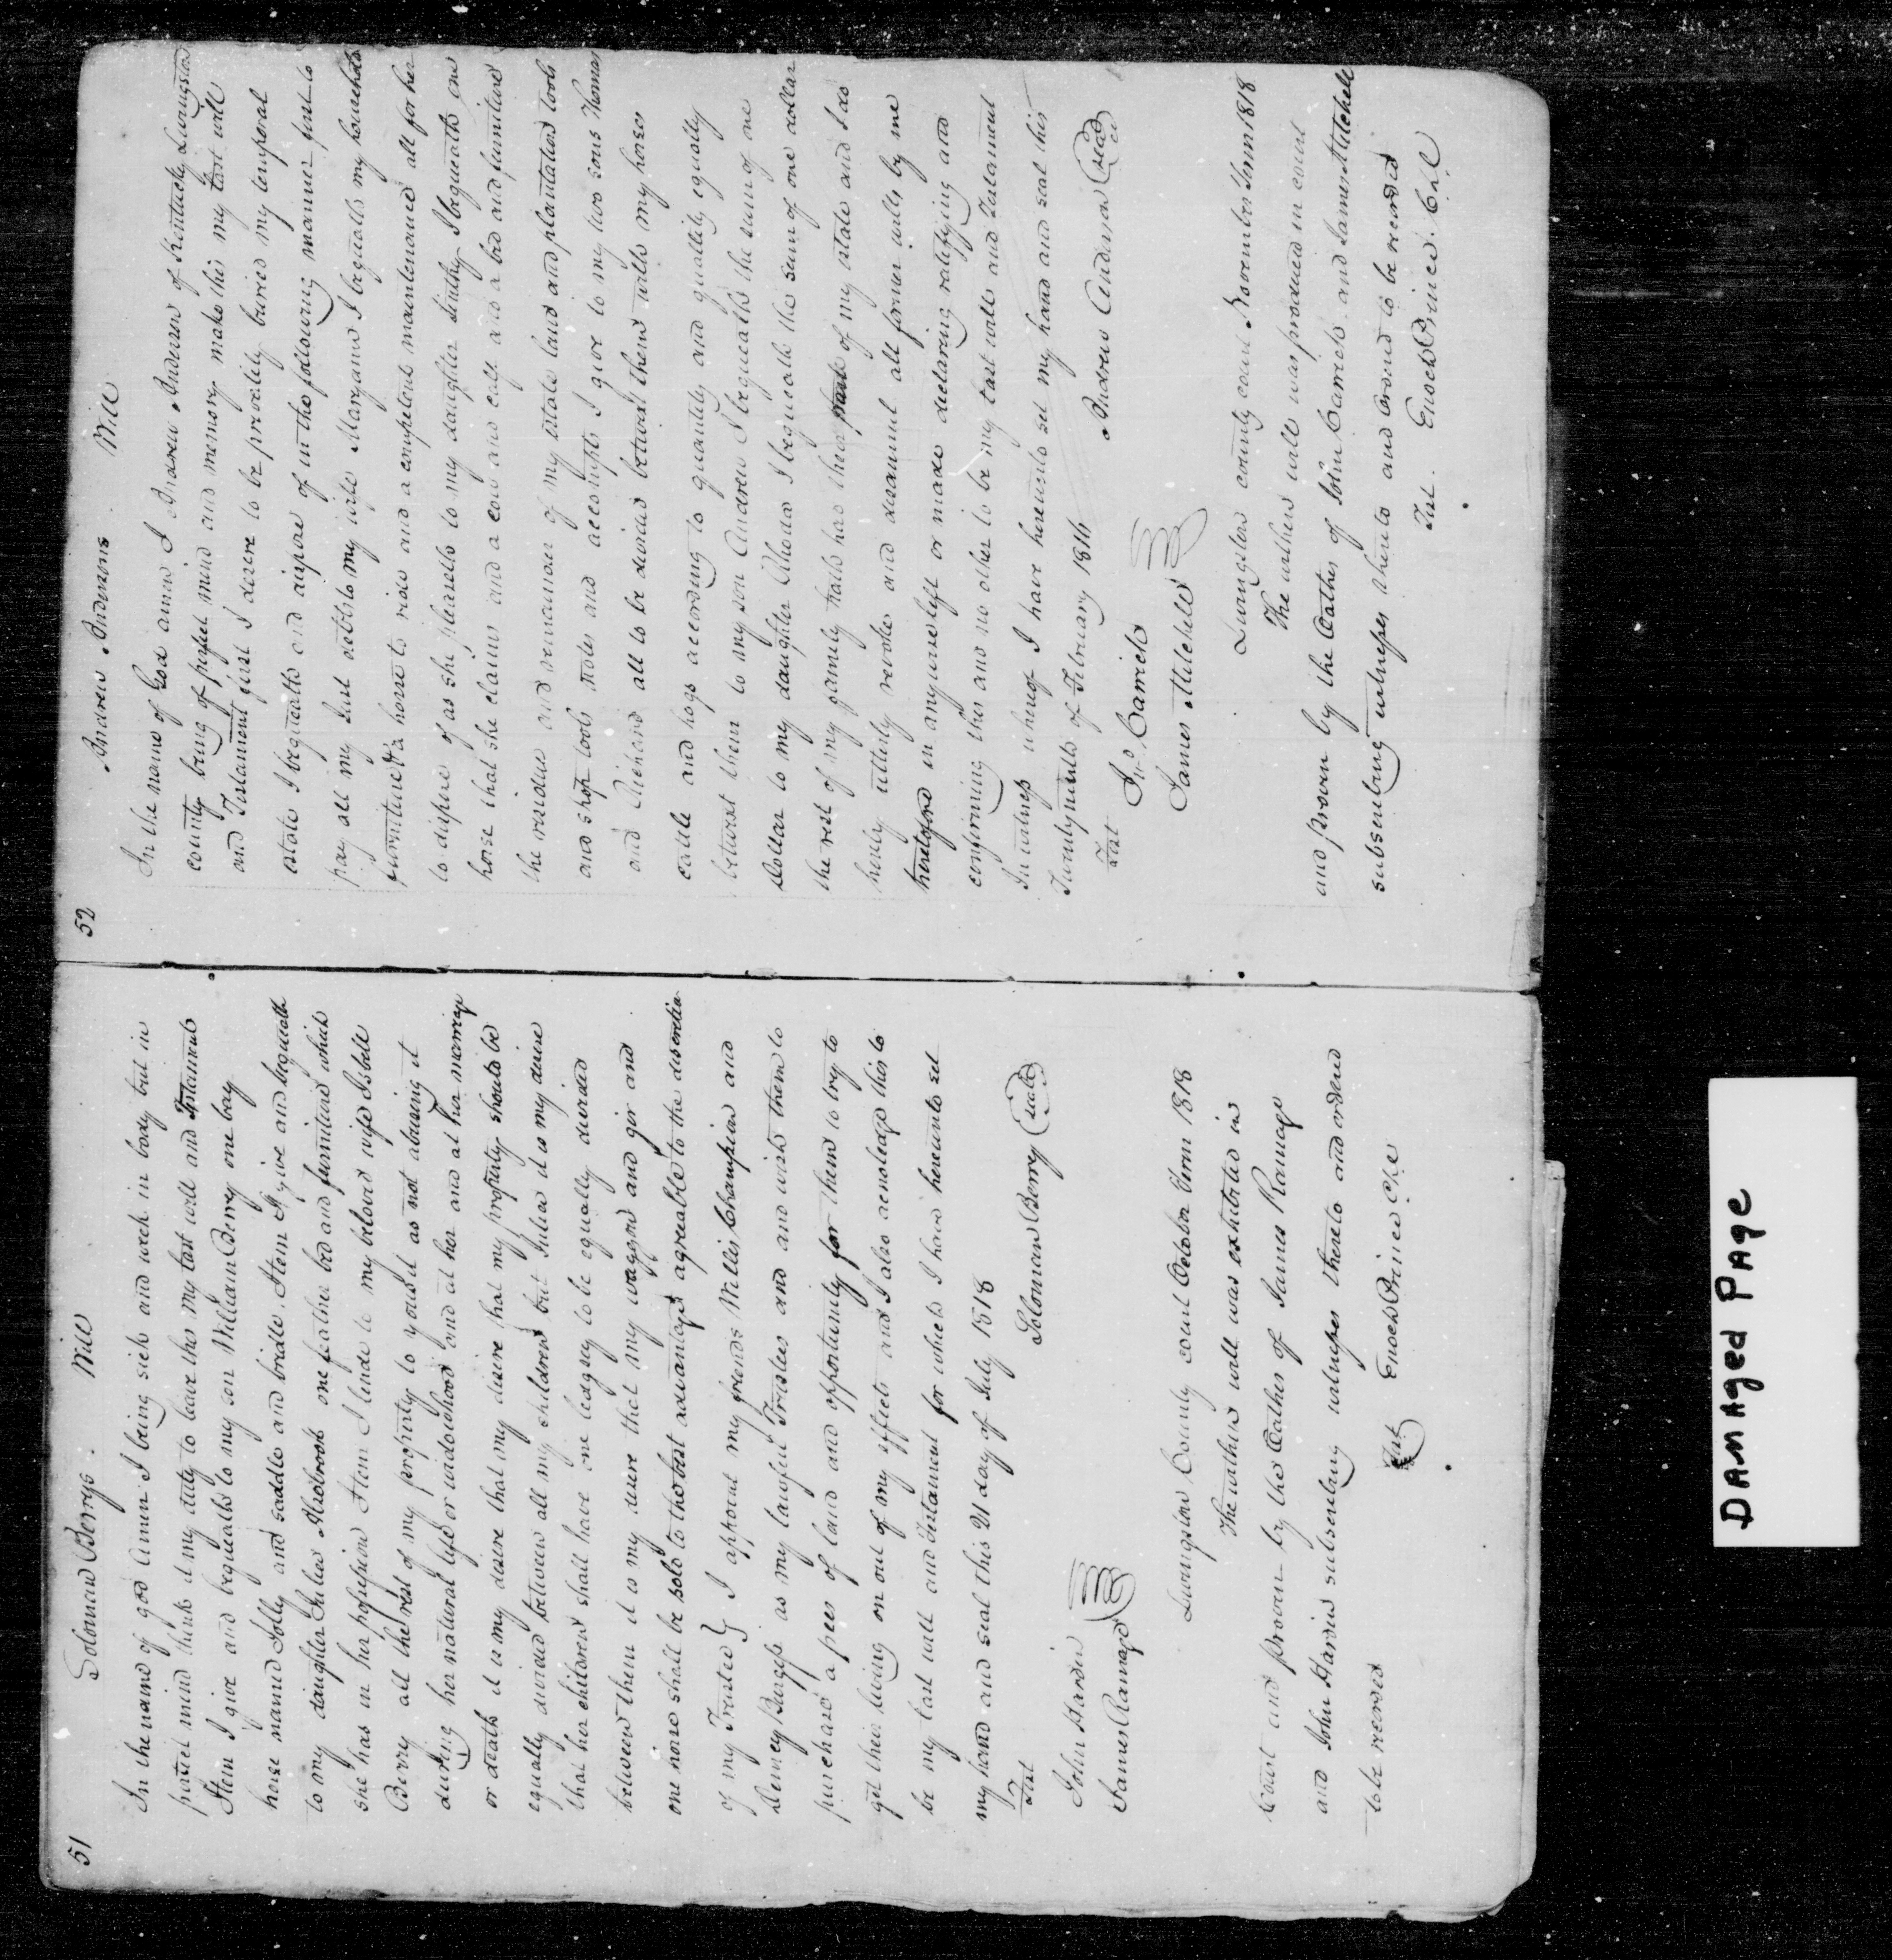 51
Solomon Berrys Will
In the name of god amen I being sick and week in body but in
perfect mind thinks it my duty to leave this my last will and Testament
Item I give and bequeath to my son William Berry one bay
horse named Jolly and saddle and bridle. Item I give and bequeath
to my daughter Juliea one feather bed and furniture which
she has in her possession Item I lende to my beloved wife Isbell
Berry all the rest of my property to yous it as not abuseing it
during her natural life or widowhood and at her and at her marriage
or death it is my desire that my desire that my property should be
equally divided between all my children but Juliea it is my desire
that her children shall have one leagsey to be equally divided
between them it is my desire that my waggon and gir and
one more shall be sold to the best advantage agreable to the discretia
of my Trusted } I appoint my friends Willis Champion and
Burgess as my lawful Trustees and and wish them to
purchase a pees of land and oppertunity for them to try to
git their living on out of my effects and I also acnoledge this to
be my last will and Testament for which I have hereunto set
my hand and seal this 21 day of July 1818
Test Solomon Berry (seal)
John Harden
James Ramage
Livingston County court October Term 1818
The within will was exhibited in
Court and proven by the Oathes of James Ramage
and John Hardin subscribing witnesses thereto and ordered
to be recorded
Test Enoch Prince Clk
52
Andrew Andersons Will
In the name of God amen I Andrew Anderson of Kentucky Livingston
county being of perfect mind and memory make this my last will
and Testament first I desere to be buried my temporal
estate I bequeath and dispose of in the following manner first to
pay all my Just debts to my wife Margann I bequeath my household
furniture & a horse to ride and a compitent maintenance all for her
to dispose of as she pleaseth to my daughter Sinthy I bequeath one
horse that she claims and a cow and calf also a bed and furniture
the residue and remainder of my estate land and plantation tools
and shop tools notes and accoumpts I give to my two sons Thomas
and Richard all to be devided betwixt them with my horses
cattle and hogs according to quantity and quallity equally
betwixt them to my son Andrew I bequeath the sum of one
Dollar to my daughter Rhoda I bequeath the sum of one dollar
the rest of my family hath had their part of my estate and I do
herely utterly revoke and disannul all former wills by me
heretofore in anywise left or made declaring ratifying and
confirming this and no other to be my last will and Testament
In witness whereof I have hereunto set my hand and seal this
Twentynineth of February 1816
Test Andrew Anderson (seal)
Jno Carrick
James Mitchell
Livingston county court November Term 1818
The within will was produced in court
and proven by the Oathes of John Carrick and James Mitchell
subscribing witnesses thereto and Orderd to be recorded
Test. Enoch Prince. C.L.C
DAMAged PAge